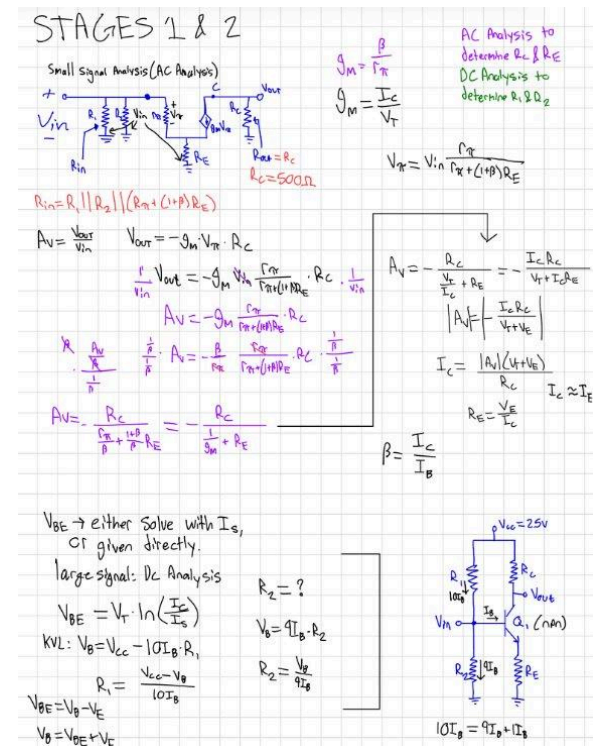 STAGES 1 & 2
AC Analysis to
determine Rc & RE
DC Analysis to
determine R1 & R2
gM = β/rπ
gM = Ic/VT
Small Signal Analysis (AC Analysis)
+
Vin
-
R1
R2
Vin
rπ
+
Vπ
-
gmVπ
C
Vout
Rc
RE
Rin
Rout = Rc
Rc = 500Ω
Vπ = Vin rπ/(rπ+(1+β)RE)
Rin = R1 || R2 || (Rπ + (1+β)RE)
Av = Vout/Vin
Vout = -gM·Vπ·Rc
1/Vin Vout = -gM Vin rπ/(rπ+(1+β)RE) · Rc · 1/Vin
Av = -gM rπ/(rπ+(1+β)RE) · Rc
1/β · Av = -β/rπ rπ/(rπ+(1+β)RE) · Rc · 1/β
Av = - Rc/(rπ/β + (1+β)/β RE) = - Rc/(1/gM + RE)
Av = - Rc/(VT/Ic + RE) = - IcRc/(VT + IcRE)
|Av| = |- IcRc/(VT+VE)|
Ic = |Av|(VT+VE)/Rc
Ic ≈ IE
RE = VE/Ic
β = Ic/IB
VBE → either solve with Is,
or given directly.
large signal: DC Analysis
VBE = VT · ln(Ic/Is)
KVL: VB = Vcc - 10IB·R1
R1 = (Vcc - VB)/10IB
VBE = VB - VE
VB = VBE + VE
R2 = ?
VB = 9IB·R2
R2 = VB/9IB
Vcc = 25V
R1
10IB
Rc
Vout
Vin
IB
Q1 (npn)
R2
9IB
RE
10IB = 9IB + 1IB